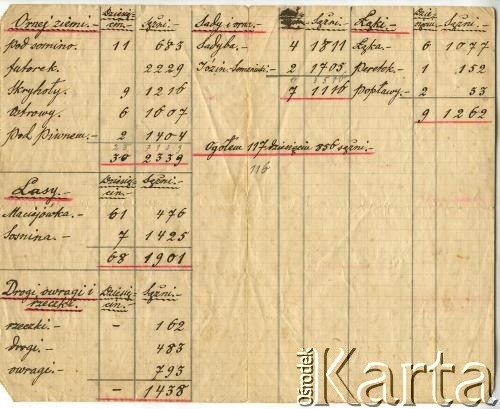 Ornej ziemi.- Dziesię- Sążni.-
cin.-
pod somino.- 11 683
futorek. 2229
Skryhoły.- 9 1216
Ostrowy.- 6 1607
pod Piwnem.- 2 1404
30 2339
Lasy.- Dziesię- Sążni.-
cin.-
Maciejówka.- 61 476
Sosnina.- 7 1425
68 1901
Drogi, owragi i Dziesię- Sążni.-
rzeczki. cin.-
rzeczki.- - 162
drogi.- 483
owragi.- 793
- 1438
Sady i Sążni.-
Sadyba.- 4 1811
2 1705
7 1116
Ogółem 117 dziesięcin 856 sążni.-
116
Łąki.- Dzie- Sążni.-
Łąka.- 6 1077
Peretok.- 1 152
Popławy.- 2 33
9 1262
Ośrodek Karta